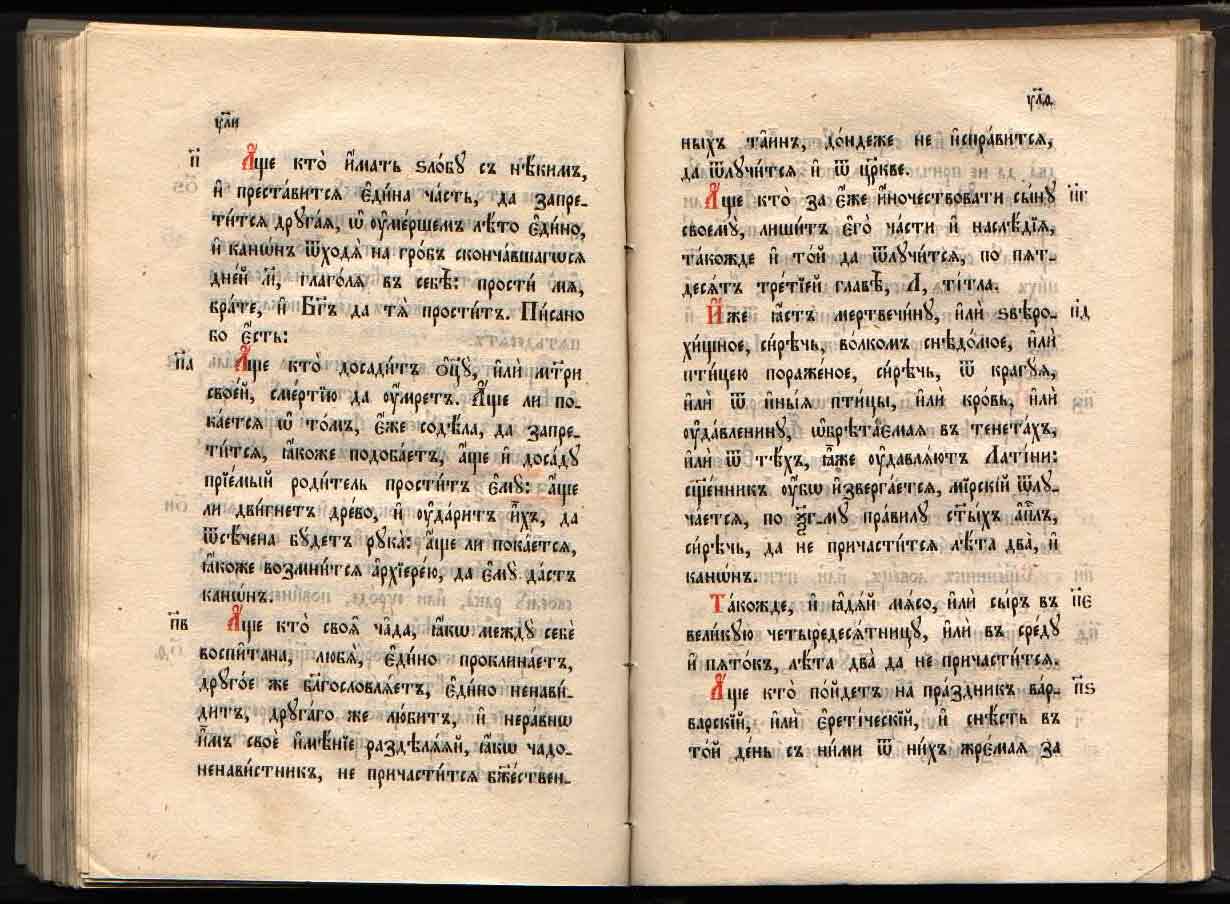 у҃ли
п҃
А҆́ще кто̀ и҆́мать ѕло́бꙋ съ нѣ́кимъ,
и҆ преста́витсѧ є҆ди́на ча́сть, да запре-
ти́тсѧ дрꙋга́ѧ, ѡ҆ оу҆ме́ршемъ лѣ́то є҆ди́но,
и҆ канѡ́нъ ѿходѧ̀ на гро́бъ сконча́вшагѡсѧ
дне́й м҃, глаго́лѧ въ себѣ̀: прости́ мѧ,
бра́те, и҆ Бг҃ъ да тѧ̀ прости́тъ. Пи́сано
бо є҆́сть:
п҃а
А҆́ще кто̀ досади́тъ ѻ҆ц҃ꙋ̀, и҆лѝ мт҃ри
свое́й, сме́ртїю да оу҆́мретъ. А҆́ще ли по-
ка́етсѧ ѡ҆ то́мъ, є҆́же содѣ́ла, да запре-
ти́тсѧ, ꙗ҆́коже подоба́етъ, а҆́ще и҆ доса́дꙋ
прїе́мый роди́тель прости́тъ є҆мꙋ̀: а҆́ще
ли дви́гнетъ дре́во, и҆ оу҆да́ритъ и҆̀хъ, да
ѿсѣ́чена бꙋ́детъ рꙋка̀: а҆́ще ли пока́етсѧ,
ꙗ҆́коже возмни́тсѧ а҆рхїере́ю, да є҆мꙋ̀ да́стъ
канѡ́нъ.
п҃в
А҆́ще кто̀ своѧ̑ ча̑да, ꙗ҆́кѡ междꙋ̀ себѐ
воспи́тана, любѧ̀, є҆ди́но проклина́етъ,
дрꙋго́е же бл҃гословлѧ́етъ, є҆ди́но ненави́-
дитъ, дрꙋга́го же лю́битъ, и҆ нера́внѡ
и҆̀мъ своѐ и҆мѣ́нїе раздѣлѧ́ѧй, ꙗ҆́кѡ чадо-
ненави́стникъ, не причасти́тсѧ бж҃е́ствен-
у҃лѳ
ныхъ та́инъ, до́ндеже не и҆спра́витсѧ,
да ѿлꙋчи́тсѧ и҆ ѿ цр҃кве.
п҃г
А҆́ще кто̀ за є҆́же и҆́ночествовати сы́нꙋ
своемꙋ̀, лиши́тъ є҆го̀ ча́сти и҆ наслѣ́дїѧ,
та́кожде и҆ то́й да ѿлꙋчи́тсѧ, по пѧт-
десѧ́тъ тре́тїей главѣ̀, Л, ти́тла.
п҃д
И҆́же ꙗ҆́стъ мертвечи́нꙋ, и҆лѝ ѕвѣро-
хи́щное, си́рѣчь, во́лкомъ снѣдо́мое, и҆лѝ
пти́цею пораже́ное, си́рѣчь, ѿ крагꙋ́ѧ,
и҆лѝ ѿ и҆ны́ѧ пти́цы, и҆лѝ кро́вь, и҆лѝ
оу҆да́вленинꙋ, ѡ҆брѣта́емаѧ въ тенета́хъ,
и҆лѝ ѿ тѣ́хъ, ꙗ҆̀же оу҆давлѧ́ютъ Лати́ни:
сщ҃е́нникъ оу҆́бѡ и҆зверга́етсѧ, мїрскі́й ѿлꙋ-
ча́етсѧ, по ѯ҃г-мꙋ̀ пра́вилꙋ ст҃ы́хъ а҆пⷭ҇лъ,
си́рѣчь, да не причасти́тсѧ лѣ̑та два̀, и҆
канѡ́нъ.
п҃е
Та́кожде, и҆ ꙗ҆ды́й мѧ́со, и҆лѝ сы́ръ въ
вели́кꙋю четыредесѧ́тницꙋ, и҆лѝ въ сре́дꙋ
и҆ пѧто́къ, лѣ̑та два̀ да не причасти́тсѧ.
п҃ѕ
А҆́ще кто̀ по́йдетъ на пра́здникъ ва́р-
варскїй, и҆лѝ є҆рети́ческїй, и҆ снѣ́сть въ
то́й де́нь съ ни́ми ѿ ни́хъ жре́маѧ за